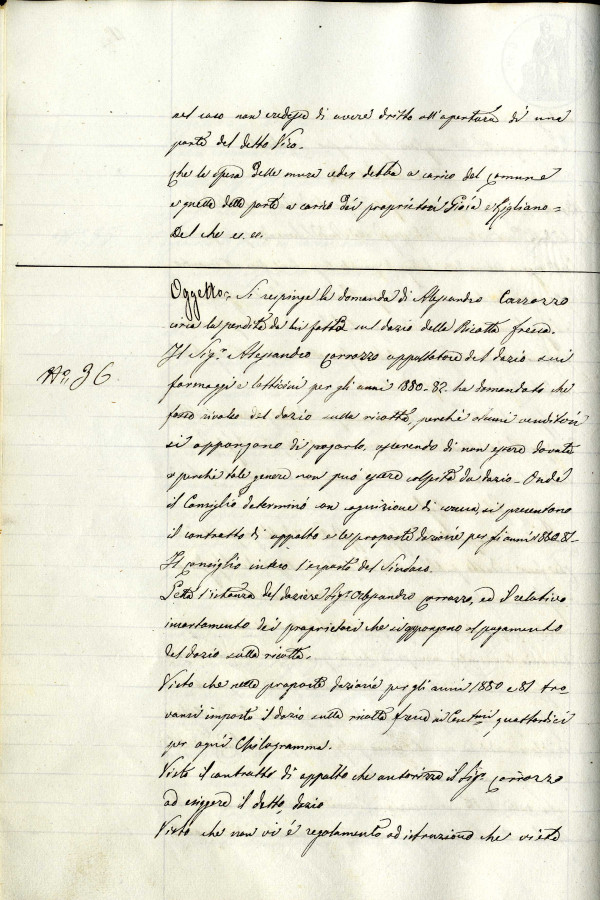 nel caso non credesse di avere dritto all'apertura di una
parte del detto Vico.
che la spesa delle mura cedes debba a carico del comune
e quella delle porte a carico dei proprietarî Gioia e Figliano =
Del che es. es.
Oggetto = Si respinge la domanda di Alessandro Carrozzo
circa la perdita da lui fatta sul dazio della Ricotta fresca.
N.° 36
Il Sig.r Alessandro Carrozzo appaltatore del dazio sui
formaggi e latticini per gli anni 1880-82. ha domandato che
fosse rivalso del dazio sulla ricotta, perchè alcuni venditori
si oppongono di pagarlo, asserendo di non essere dovuto
e perchè tale genere non può essere colpito da dazio - Onde
il Consiglio determinò con cognizione di causa, si presentano
il contratto di appalto e le proposte daziarie per gli anni 1880. 81 -
Il Consiglio inteso l'esposto del Sindaco.
Letta l'istanza del daziere Sig.r Alessandro Carrozzo, ed il relativo
incartamento dei proprietari che si oppongono al pagamento
del dazio sulla ricotta.
Visto che nelle proposte daziarie per gli anni 1880 e 81 tro-
vansi imposto il dazio sulla ricotta fresca in Centesimi quattordici
per ogni Chilogramma.
Visto il contratto di appalto che autorizza il Sig.r Carrozzo
ad esiggere il detto dazio
Visto che non vi è regolamento od istruzione che vieta